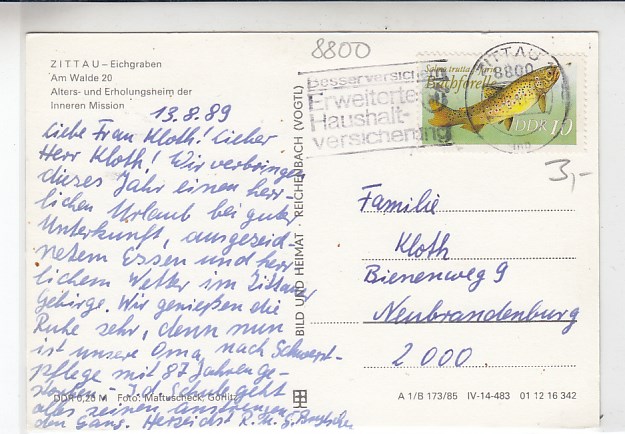 ZITTAU – Eichgraben
Am Walde 20
Alters- und Erholungsheim der
Inneren Mission
13.8.89
Liebe Frau Kloth! Lieber
Herr Kloth! Wir verbringen
dieses Jahr einen herr-
lichen Urlaub bei guter
Unterkunft, ausgezeich-
netem Essen und herr-
lichem Wetter im Zittauer
Gebirge. Wir genießen die
Ruhe sehr, denn nun
ist unsere Oma, nach Schwerst-
pflege mit 87 Jahren ge-
storben – I. d. Schule geht
alles seinen anstrengen-
den Gang. Herzlichst R. u. G.
DDR 0,20 M Foto: Mattuscheck, Görlitz
BILD UND HEIMAT · REICHENBACH (VOGTL)
8800
Besser versichert
Erweiterte
Haushalt-
versicherung
ZITTAU
8800
Salmo trutta fario
Bachforelle
DDR 10
3,-
Familie
Kloth
Bienenweg 9
Neubrandenburg
2000
A 1/B 173/85 IV-14-483 01 12 16 342